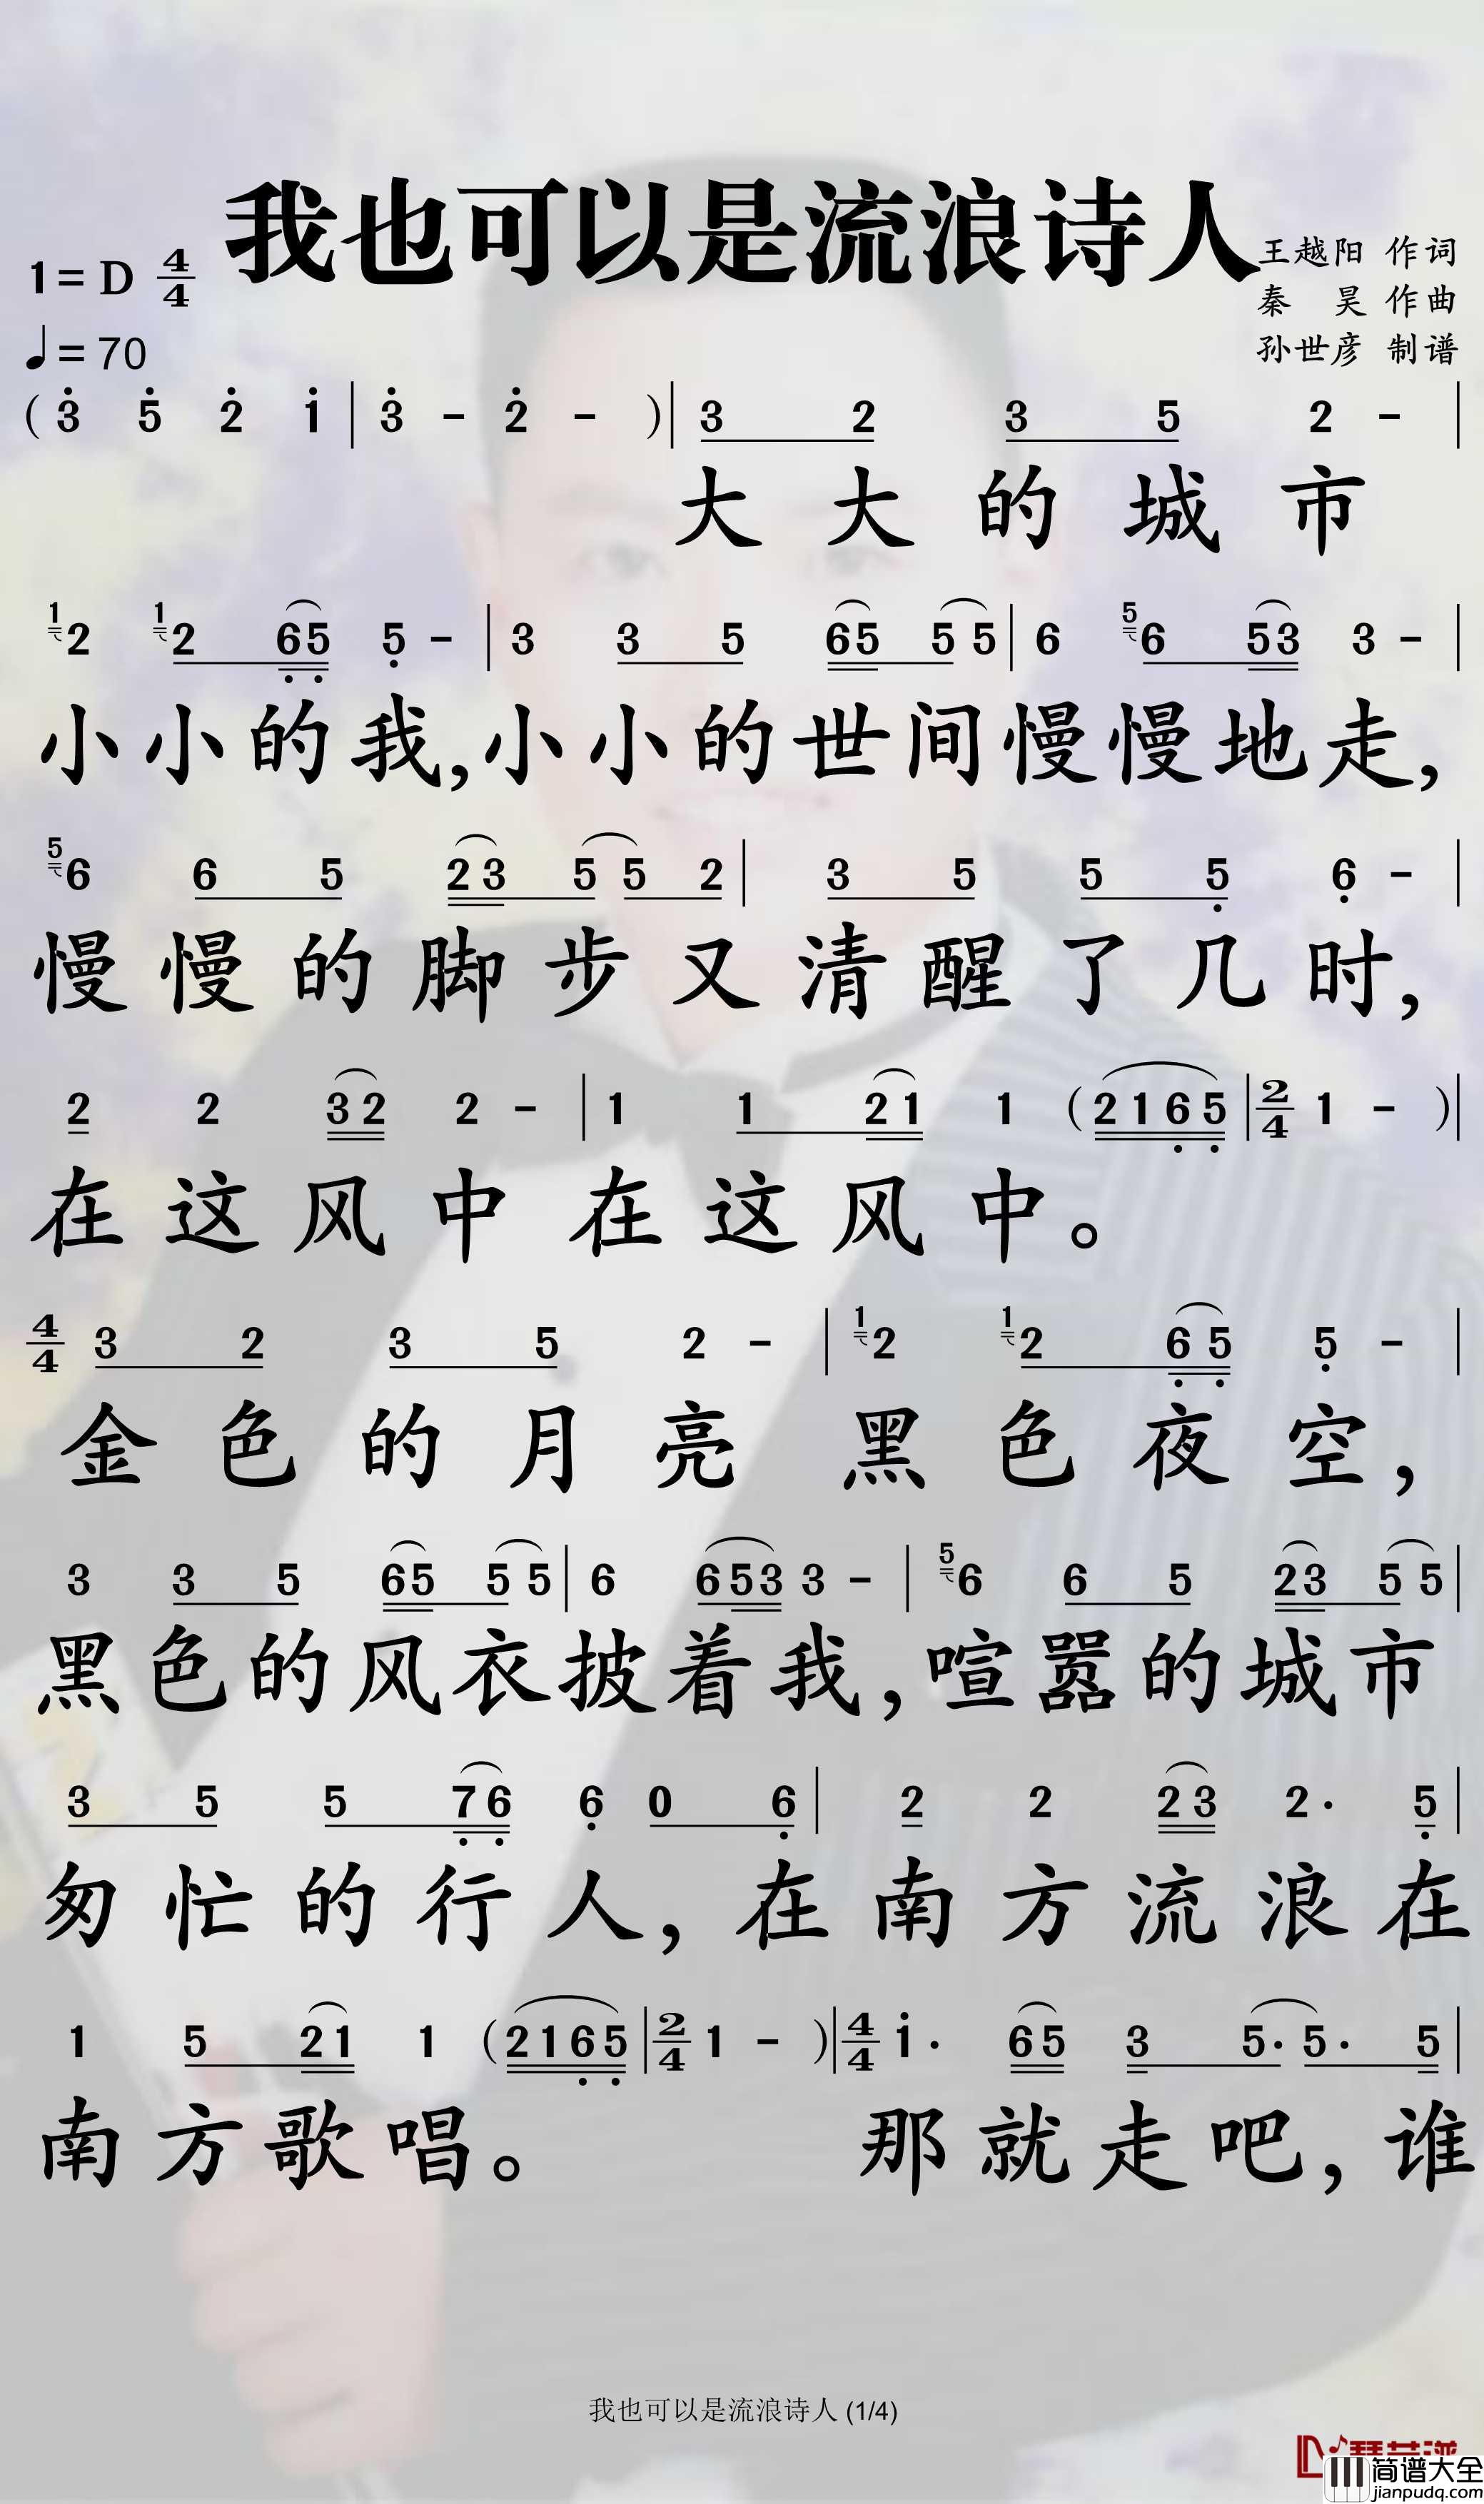 我也可以是流浪诗人
1=D 4/4
♩=70
王越阳 作词
秦 昊 作曲
孙世彦 制谱
( 3̇ 5̇ 2̇ 1̇ | 3̇ - 2̇ - ) | 3 2 3 5 2 - |
大大的城市
1 2 1 2 6̣ 5̣ 5̣ - | 3 3 5 6 5 5 5 | 6 5 6 5 3 3 - |
小小的我,小小的世间慢慢地走,
5 6 6 5 2 3 5 5 2 | 3 5 5 5̣ 6̣ - |
慢慢的脚步又清醒了几时,
2 2 3 2 2 - | 1 1 2 1 1 ( 2 1 6̣ 5̣ | 2/4 1 - ) |
在这风中 在这风中。
4/4 3 2 3 5 2 - | 1 2 1 2 6̣ 5̣ 5̣ - |
金色的月亮 黑色夜空,
3 3 5 6 5 5 5 | 6 6 5 3 3 - | 5 6 6 5 2 3 5 5 |
黑色的风衣披着我,喧嚣的城市
3 5 5 7̣ 6̣ 6̣ 0 6̣ | 2 2 2 3 2 · 5̣ |
匆忙的行人,在南方流浪在
1 5 2 1 1 ( 2 1 6̣ 5̣ | 2/4 1 - ) | 4/4 1̇ · 6 5 3 5 · 5 · 5 |
南方歌唱。 那就走吧,谁
我也可以是流浪诗人 (1/4)
简谱大全
jianpudq.com